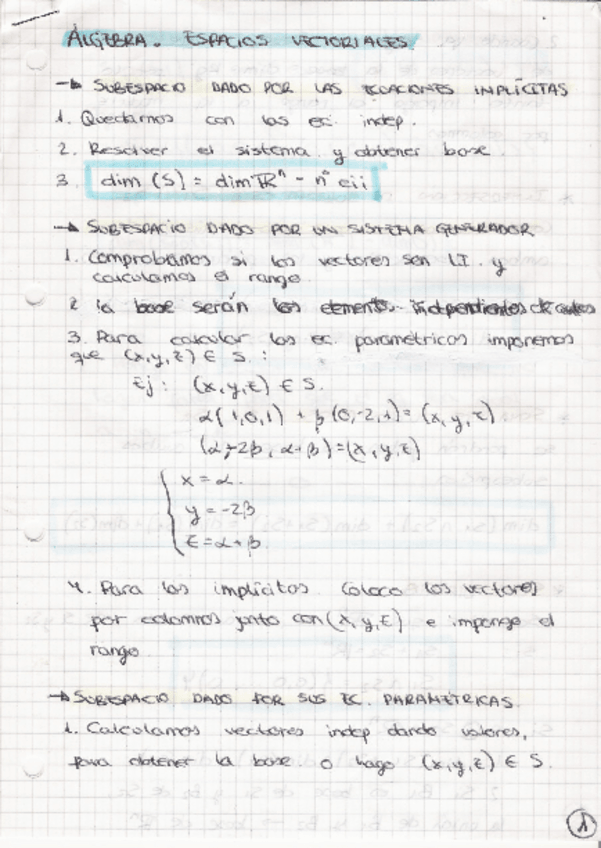 ÁLGEBRA. ESPACIOS VECTORIALES
→ SUBESPACIO DADO POR LAS ECUACIONES IMPLÍCITAS
1. Quedarnos con las ec. indep.
2. Resolver el sistema y obtener base.
3. dim (S) = dim ℝⁿ - nº eii
→ SUBESPACIO DADO POR UN SISTEMA GENERADOR
1. Comprobamos si los vectores son LI. y
calculamos el rango.
2 la base serán los elementos independientes de
3. Para calcular las ec. paramétricas imponemos
que (x,y,z) ∈ S. :
Ej: (x,y,z) ∈ S.
α(1,0,1) + β(0,-2,1) = (x,y,z)
(α,-2β, α+β) = (x,y,z)
x = α.
y = -2β
z = α+β.
4. Para las implícitas coloco los vectores
por columnas junto con (x,y,z) e impongo el
rango
→ SUBESPACIO DADO POR SUS EC. PARAMÉTRICAS.
1. Calculamos vectores indep dando valores,
para obtener la base o hago (x,y,z) ∈ S.
1